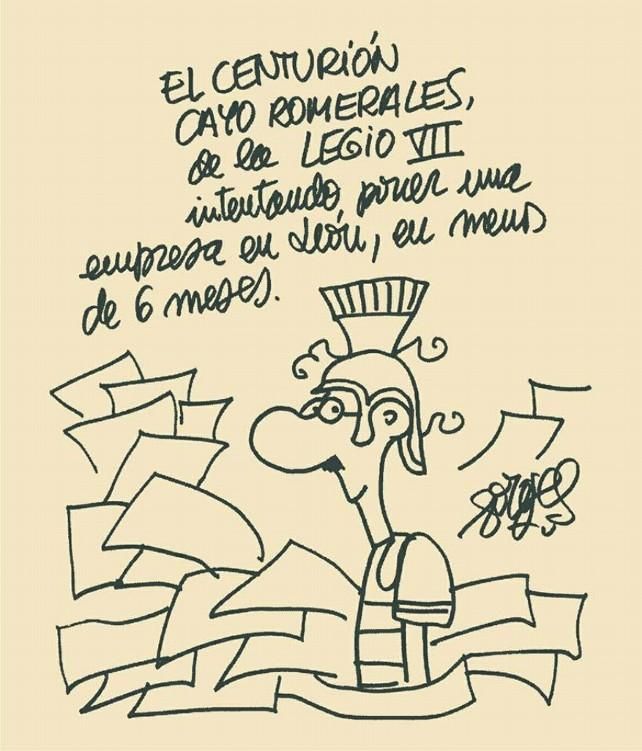 EL CENTURIÓN
CAYO ROMERALES,
de la LEGIO VII
intentando poner una
empresa en León, en menos
de 6 meses.
forges